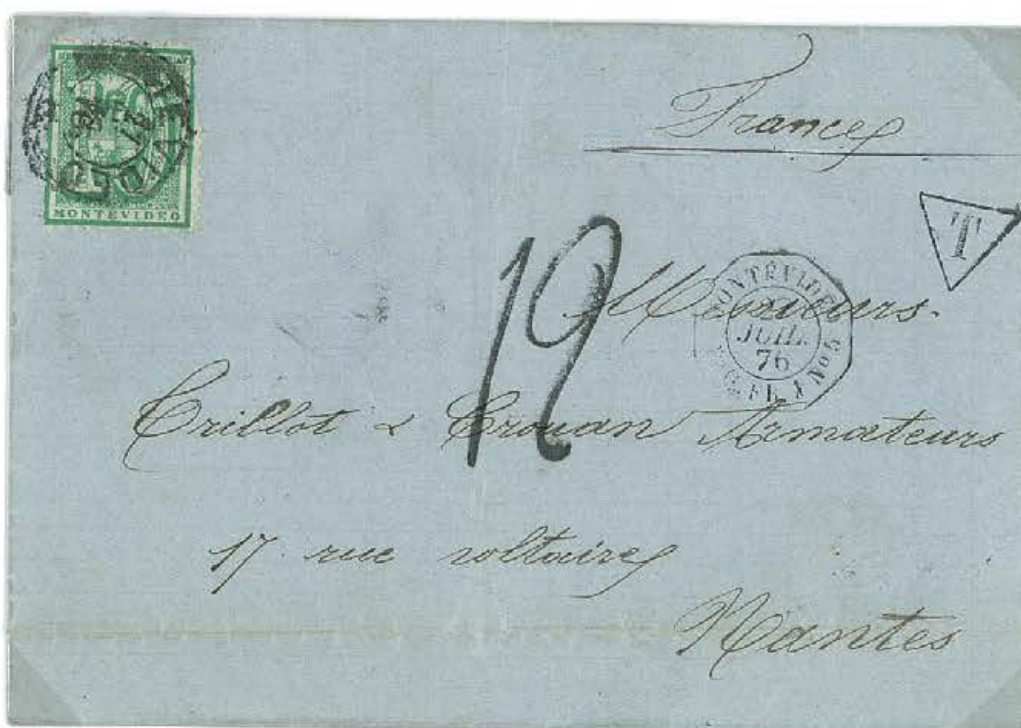 France
MONTEVIDEO
T
12
MONTEVIDEO
JUIL.
76
LIG. FR. J No 5
Messieurs.
Crillot & Crouan Armateurs
17 rue voltaire
Nantes